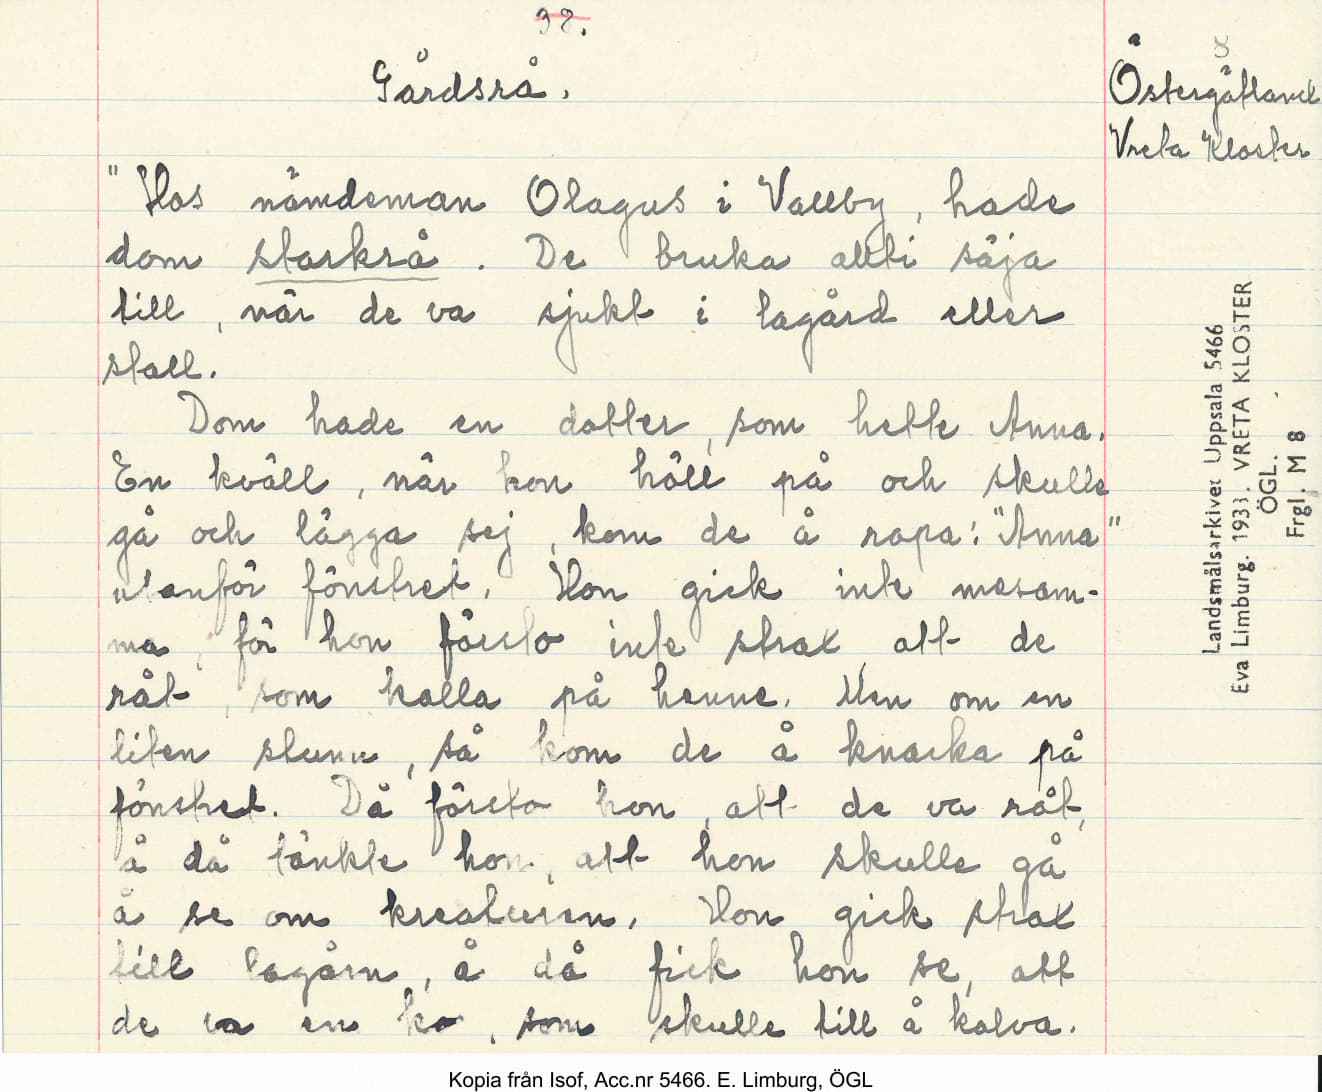 38.
Gårdsrå.
Östergötland
Vreta Kloster
"Hos nämdeman Olagus i Vallby, hade
dom starkrå. De bruka allti säja
till, när de va sjukt i lagård eller
stall.
Dom hade en dotter, som hette Anna.
En kväll, när hon höll på och skulle
gå och lägga sej, kom de å ropa: "Anna"
utanför fönstret. Hon gick inte mesam-
ma, för hon försto inte strax, att de
råt, som kalla på henne. Men om en
liten stunn, så kom de å knacka på
fönstret. Då försto hon, att de va råt,
å då tänkte hon, att hon skulle gå
å se om kreaturen. Hon gick strax
till lagårn, å då fick hon se, att
de va en ko, som skulle till å kalva.
Landsmålsarkivet Uppsala 5466
Eva Limburg. 1933. VRETA KLOSTER
ÖGL.
Frgl. M 8
Kopia från Isof, Acc.nr 5466. E. Limburg, ÖGL